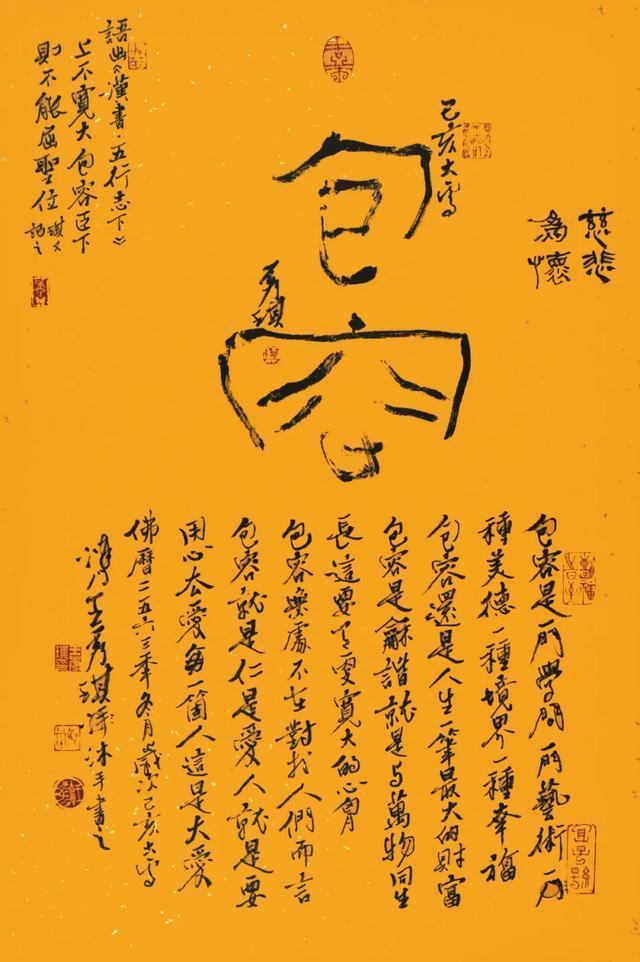 慈悲
為懷
己亥大雪
包容
彥琪
語出《漢書·五行志下》
上不寬大包容臣下
則不能居聖位琪又
記之
包容是一門學問一門藝術一
種美德一種境界一種幸福
包容還是人生一筆最大的財富
包容是龢諧就是与萬物同生
長這要有更寬大的心胸
包容無處不在對於人們而言
包容就是仁是愛人就是要
用心去愛每一箇人這是大愛
佛曆二五六三年冬月歲次己亥大雪
王彥琪沐手書之